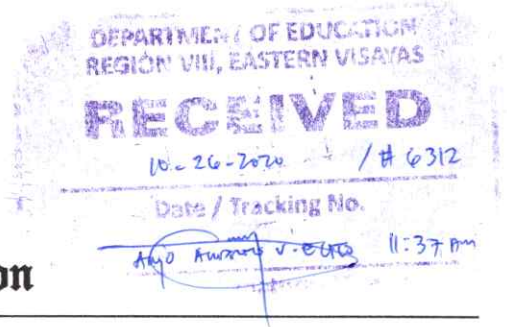 DEPARTMENT OF EDUCATION
REGION VIII, EASTERN VISAYAS
RECEIVED
10-26-2020 / # 6312
Date / Tracking No.
11:37 Am
on